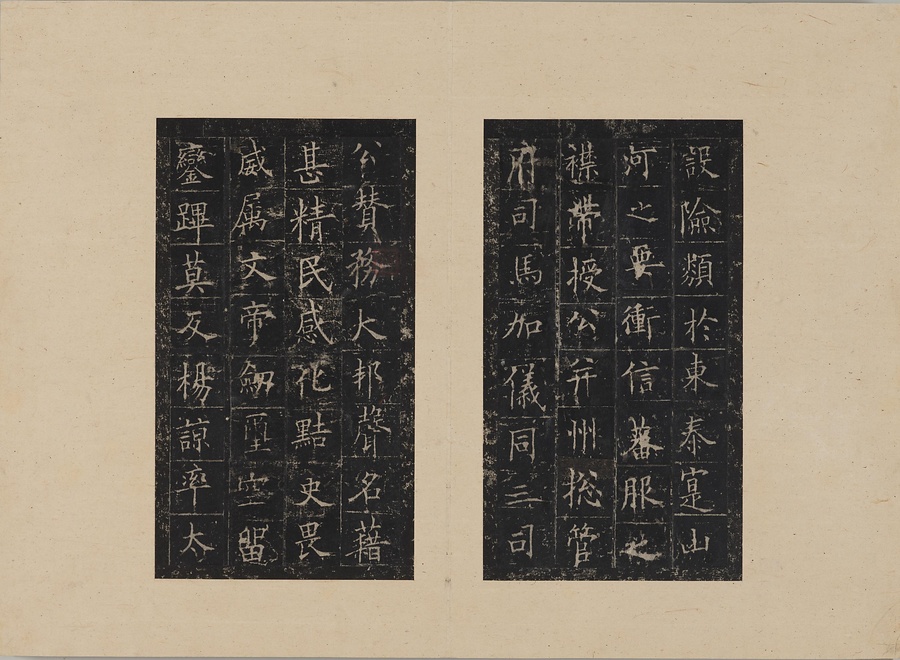 設險頻於東泰寔山
河之要衝信蕃服之
襟帶授公并州捴管
府司馬加儀同三司
公賛務大邦聲名藉
甚精民感化黠吏畏
威属文帝劒璽空留
鑾蹕莫反楊諒率太